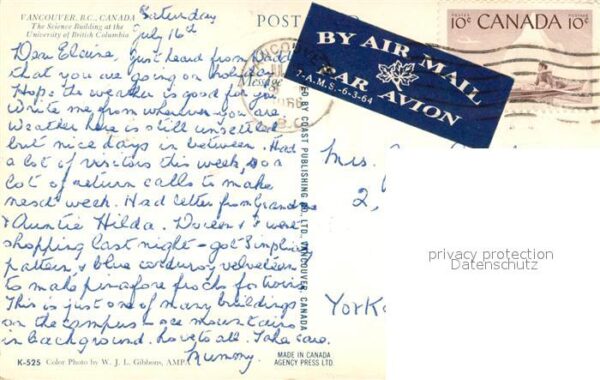 VANCOUVER, B.C., CANADA
The Science Building at the
University of British Columbia
POST
Saturday
July 16th
Dear Elaine, just heard from
that you are going on holiday
Hope the weather is good for you
Write me from wherever you are
Weather here is still unsettled
but nice days in between. Had
a lot of visitors this week, so a
lot of return calls to make
next week. Had letter from Grandma
& Auntie Hilda. Doreen & I were
shopping last night - got Simplicity
pattern & blue corduroy velveteen
to make pinafore frocks for twins
This is just one of many buildings
on the campus - see mountains
in background. Love to all. Take care.
Mummy.
K-525 Color Photo by W. J. L. Gibbons, AMPA
BY COAST PUBLISHING CO., LTD., VANCOUVER, CANADA
MADE IN CANADA
AGENCY PRESS LTD
VANCOUVER
BY AIR MAIL
PAR AVION
7-A.M.S.-6-3-64
POSTES POSTAGE
10¢ CANADA 10¢
Mrs.
2,
York
privacy protection
Datenschutz